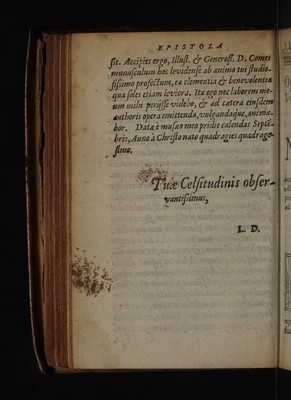 EPISTOLA
sit. Accipies ergo, Illust. & Geneross. D. Comes
munusculum hoc levidense ab animo tui studio-
sissimo profectum, ea clementia & benevolentia
qua soles etiam leviora. Ita ego nec laborem me-
um mihi perijsse videbo, & ad cætera eiusdem
authoris opera emittenda, vulgandaque, anima-
bor. Data è musæo meo pridie calendas Septē-
bris, Anno à Christo nato quadragies quadrage-
simo.
Tuæ Celsitudinis obser-
vantissimus,
L. D.